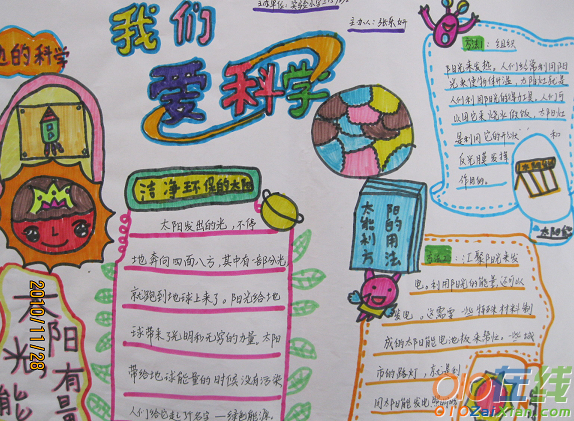 主办人：张乐妍
我们
爱科学
边的科学
方法1：组织
阳光来发热，人们经常利用阳
光来使物体升温，太阳灶就是
人们利用阳光的导热是，人们可
以用它来烧水做饭，太阳灶
是利用它的形状和
反光膜发挥
作用的。
洁净环保的太阳
太阳发出的光，不停
地奔向四面八方，其中有一部分光
就跑到地球上来了。阳光给地
球带来了光明和无穷的力量，太阳
带给地球能量的时候没有污染
人们给它起了好名字—绿色能源。
太阳的用法
能利方
方法2：汇聚阳光来发
电，利用阳光的能量，还可以
发电，这需要一些特殊材料制
成的太阳能电池板来帮忙，一些城
市的路灯，就是利
用太阳能发电
太阳能
太阳有量
光能
2010/11/28
010在线
010zaixian.com